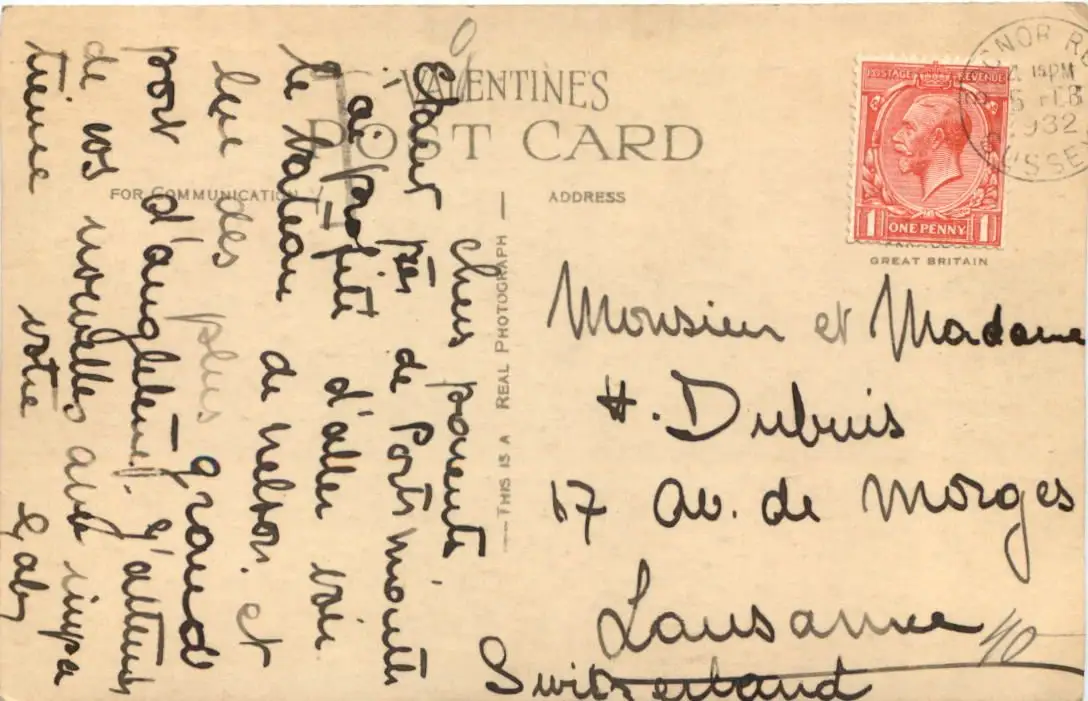 VALENTINE'S
POST CARD
FOR COMMUNICATION
ADDRESS
THIS IS A REAL PHOTOGRAPH
POSTAGE REVENUE
1 ONE PENNY 1
GREAT BRITAIN
BOGNOR RE
4 15 PM
FEB
1932
SUSSEX
chers parents
Etant près de Portsmouth
j'ai profité d'aller voir
le bateau de Nelson. et
des plus grand
port d'angleterre. J'attends
de vos nouvelles avec impa
tience votre Gaby
Monsieur et Madame
H. Dubuis
17 Av. de Morges
Lausanne
Switzerland